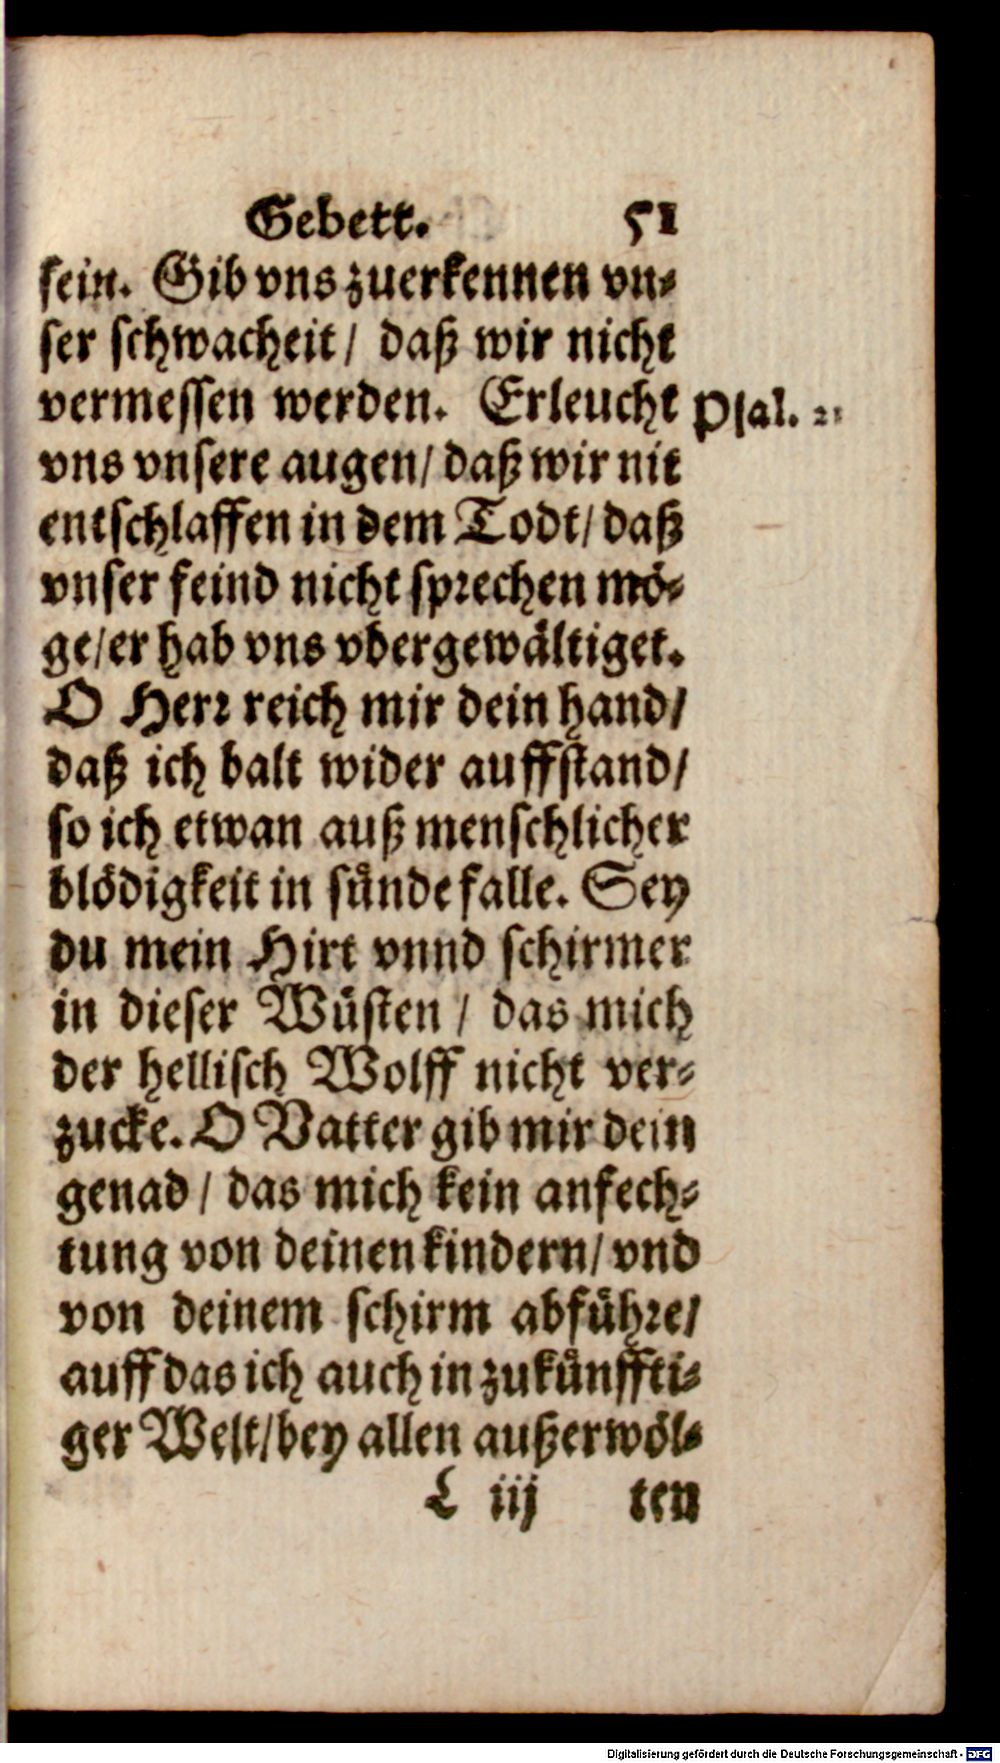 Gebett. 51
sein. Gib vns zuerkennen vn⸗
ser schwacheit / daß wir nicht
vermessen werden. Erleucht Psal.
vns vnsere augen / daß wir nit
entschlaffen in dem Todt / daß
vnser feind nicht sprechen mö⸗
ge / er hab vns vbergewältiget.
O Herr reich mir dein hand /
daß ich balt wider auffstand /
so ich etwan auß menschlicher
blödigkeit in sünde falle. Sey
du mein Hirt vnnd schirmer
in dieser Wüsten / das mich
der hellisch Wolff nicht ver⸗
zucke. O Vatter gib mir dein
genad / das mich kein anfech⸗
tung von deinen kindern / vnd
von deinem schirm abführe /
auff das ich auch in zukünffti⸗
ger Welt / bey allen außerwöl⸗
iij ten
Digitalisierung gefördert durch die Deutsche Forschungsgemeinschaft - DFG